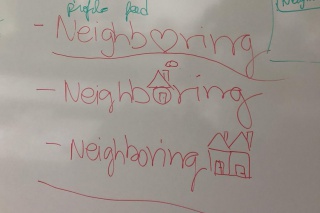 people feed
- Neighboring
- Neighboring
- Neighboring